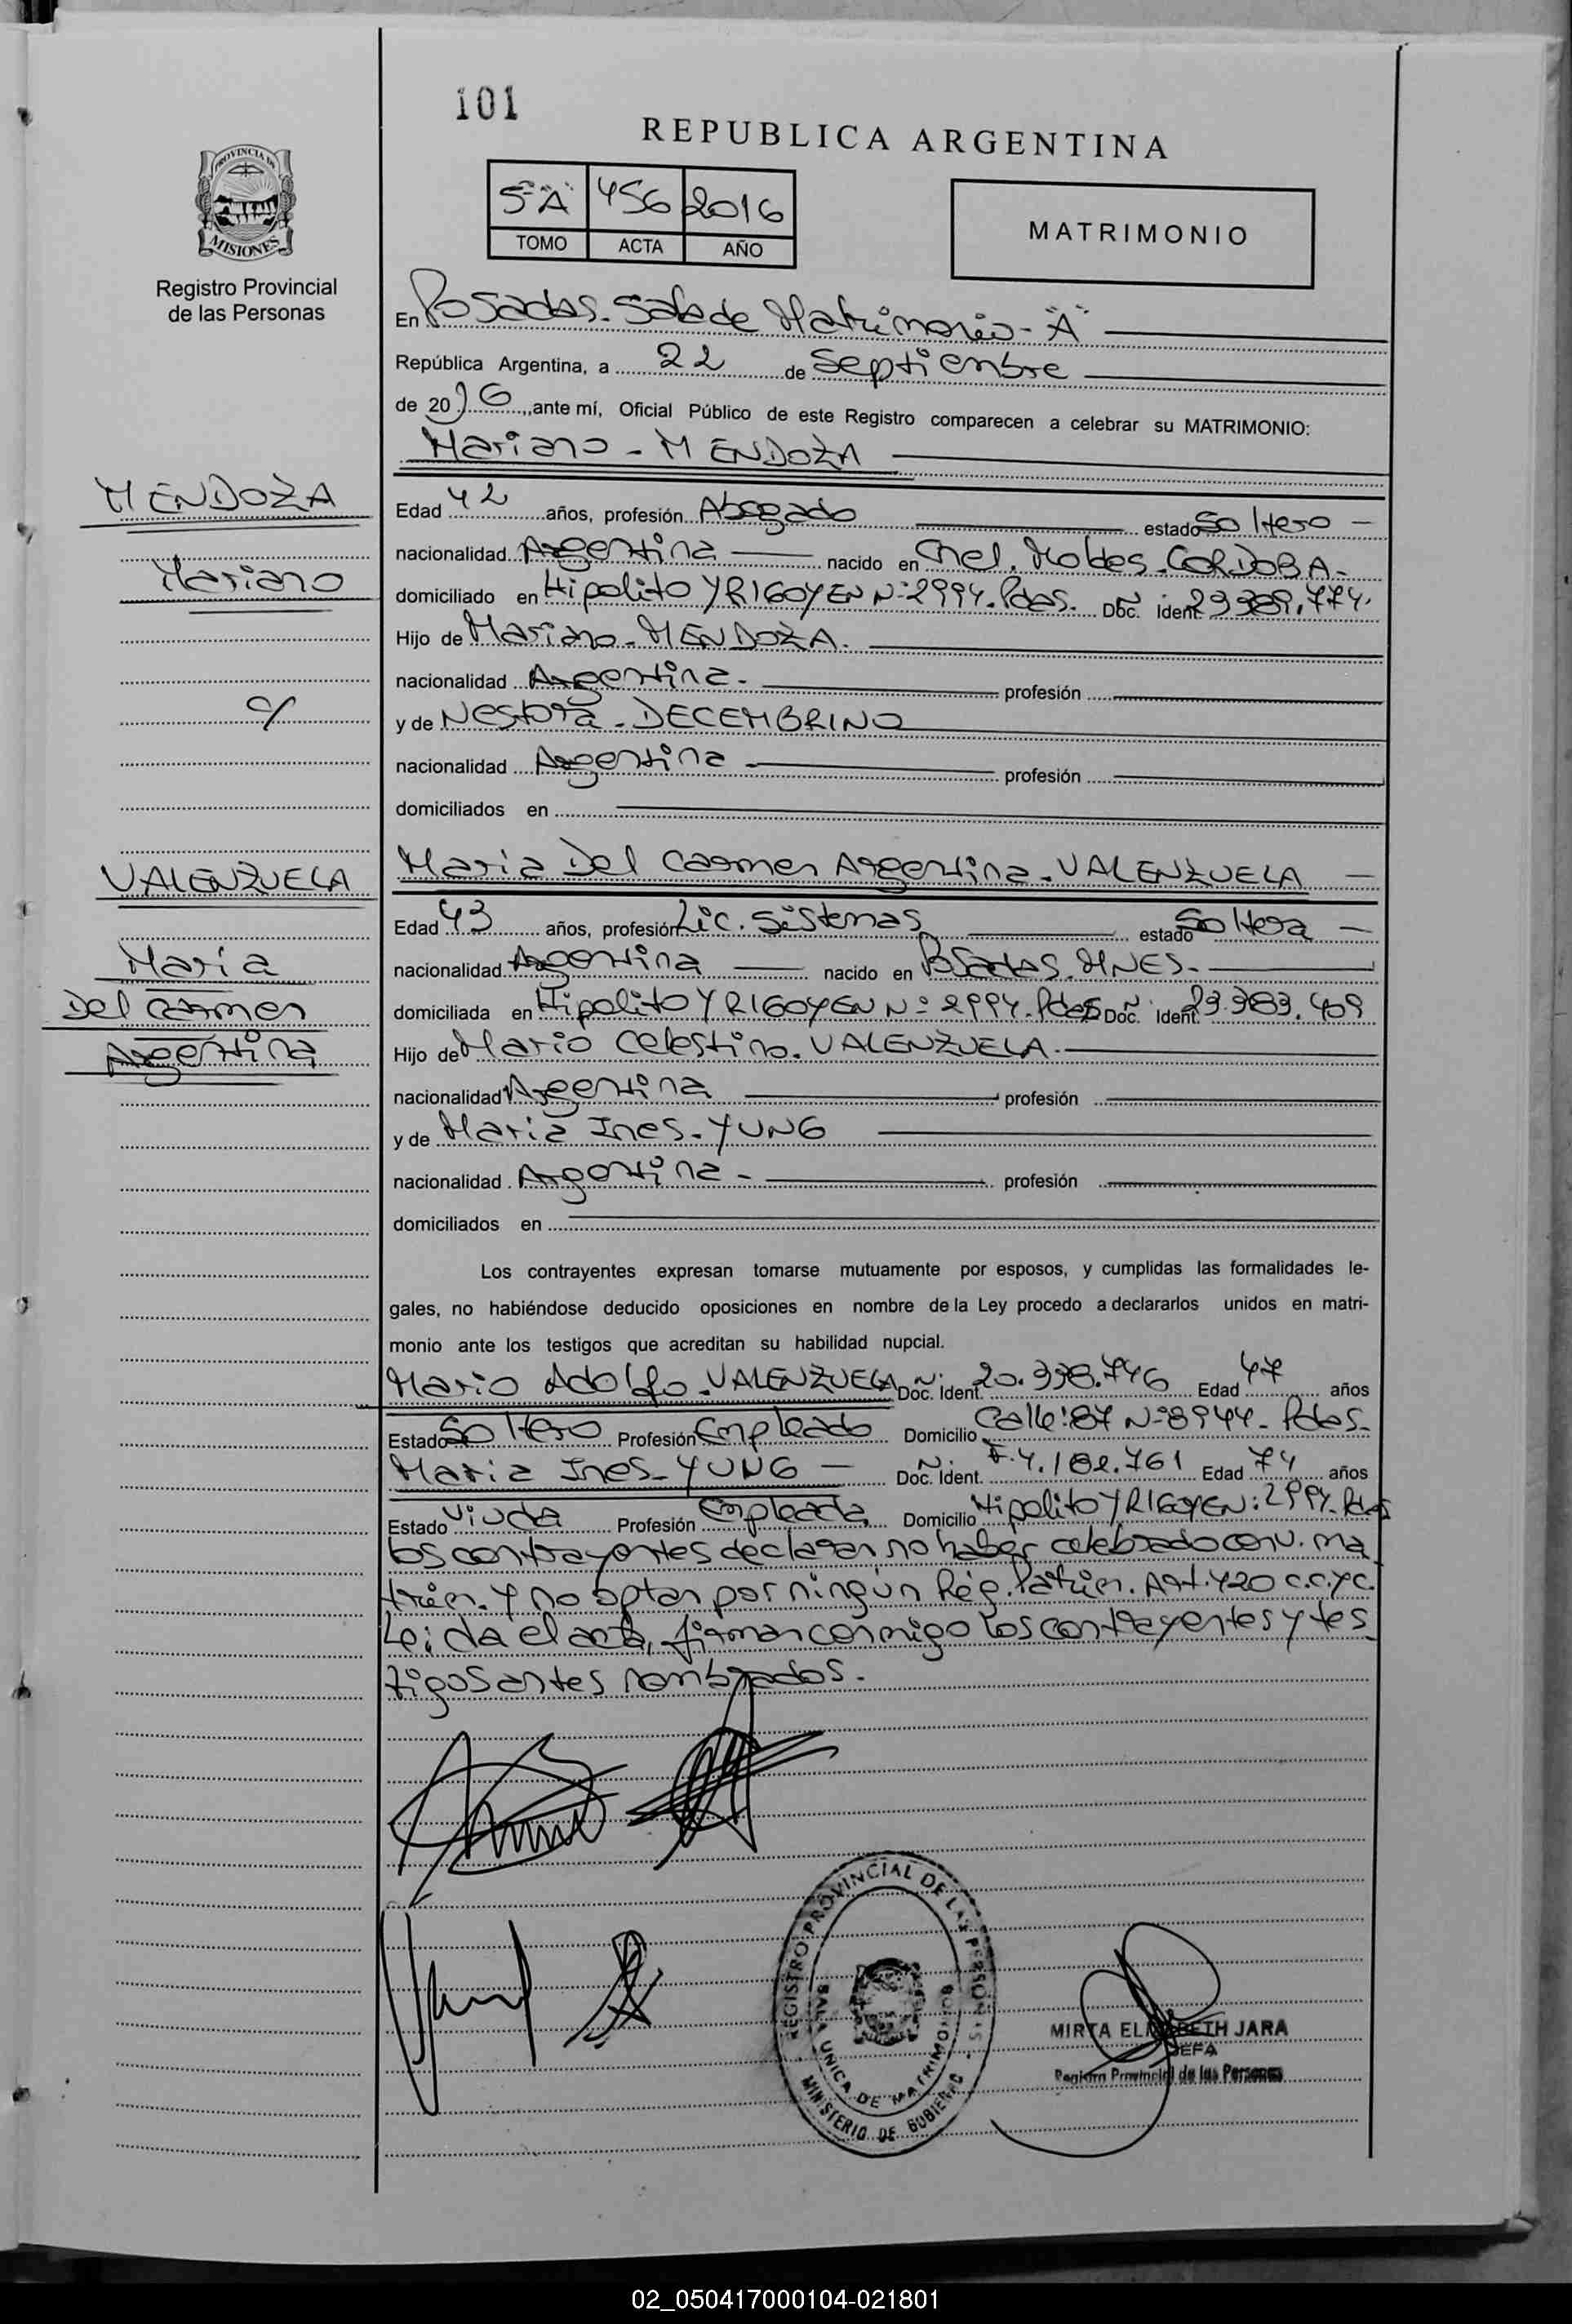 101
REPUBLICA ARGENTINA
5º "A" 456 2016
TOMO ACTA AÑO
MATRIMONIO
PROVINCIA DE
MISIONES
Registro Provincial
de las Personas
En Posadas. Sala de Matrimonio - "A"
República Argentina, a 22 de Septiembre
de 2016, ante mí, Oficial Público de este Registro comparecen a celebrar su MATRIMONIO:
Mariano - MENDOZA
MENDOZA
Mariano
c/
Edad 42 años, profesión Abogado estado Soltero -
nacionalidad Argentina nacido en Cnel. Moldes. CORDOBA -
domiciliado en Hipolito YRIGOYEN Nº 2994. Pdas. Doc. Ident. 23.389.774.
Hijo de Mariano - MENDOZA.
nacionalidad Argentina. profesión
y de Nestora - DECEMBRINO
nacionalidad Argentina profesión
domiciliados en
VALENZUELA
María
Del Carmen
Argentina
Maria Del Carmen Argentina - VALENZUELA
Edad 43 años, profesión Lic. Sistemas estado Soltera -
nacionalidad Argentina nacido en Posadas. MNES.
domiciliada en Hipolito YRIGOYEN Nº 2994. Pdas Doc. Ident. 23.383.409
Hijo de Mario Celestino. VALENZUELA.
nacionalidad Argentina profesión
y de Maria Ines. YUNG
nacionalidad Argentina - profesión
domiciliados en
Los contrayentes expresan tomarse mutuamente por esposos, y cumplidas las formalidades le-
gales, no habiéndose deducido oposiciones en nombre de la Ley procedo a declararlos unidos en matri-
monio ante los testigos que acreditan su habilidad nupcial.
Mario Adolfo. VALENZUELA Doc. Ident. 20.338.746 Edad 47 años
Estado Soltero Profesión Empleado Domicilio Calle: 87 Nº 8944 - Pdas.
Maria Ines - YUNG - Doc. Ident. F.4.182.761 Edad 74 años
Estado Viuda Profesión Empleada Domicilio Hipolito YRIGOYEN: 2994. Pdas
los contrayentes declaran no haber celebrado conv. ma
trim. y no optar por ningún Rég. Patrim. Art. 420 C.C.y C.
Leida el acta, firman conmigo los contrayentes y tes
tigos antes nombrados.
REGISTRO PROVINCIAL DE LAS PERSONAS
SALA UNICA DE MATRIMONIOS
MINISTERIO DE GOBIERNO
MIRTA ELIZABETH JARA
JEFA
Registro Provincial de las Personas
02_050417000104-021801